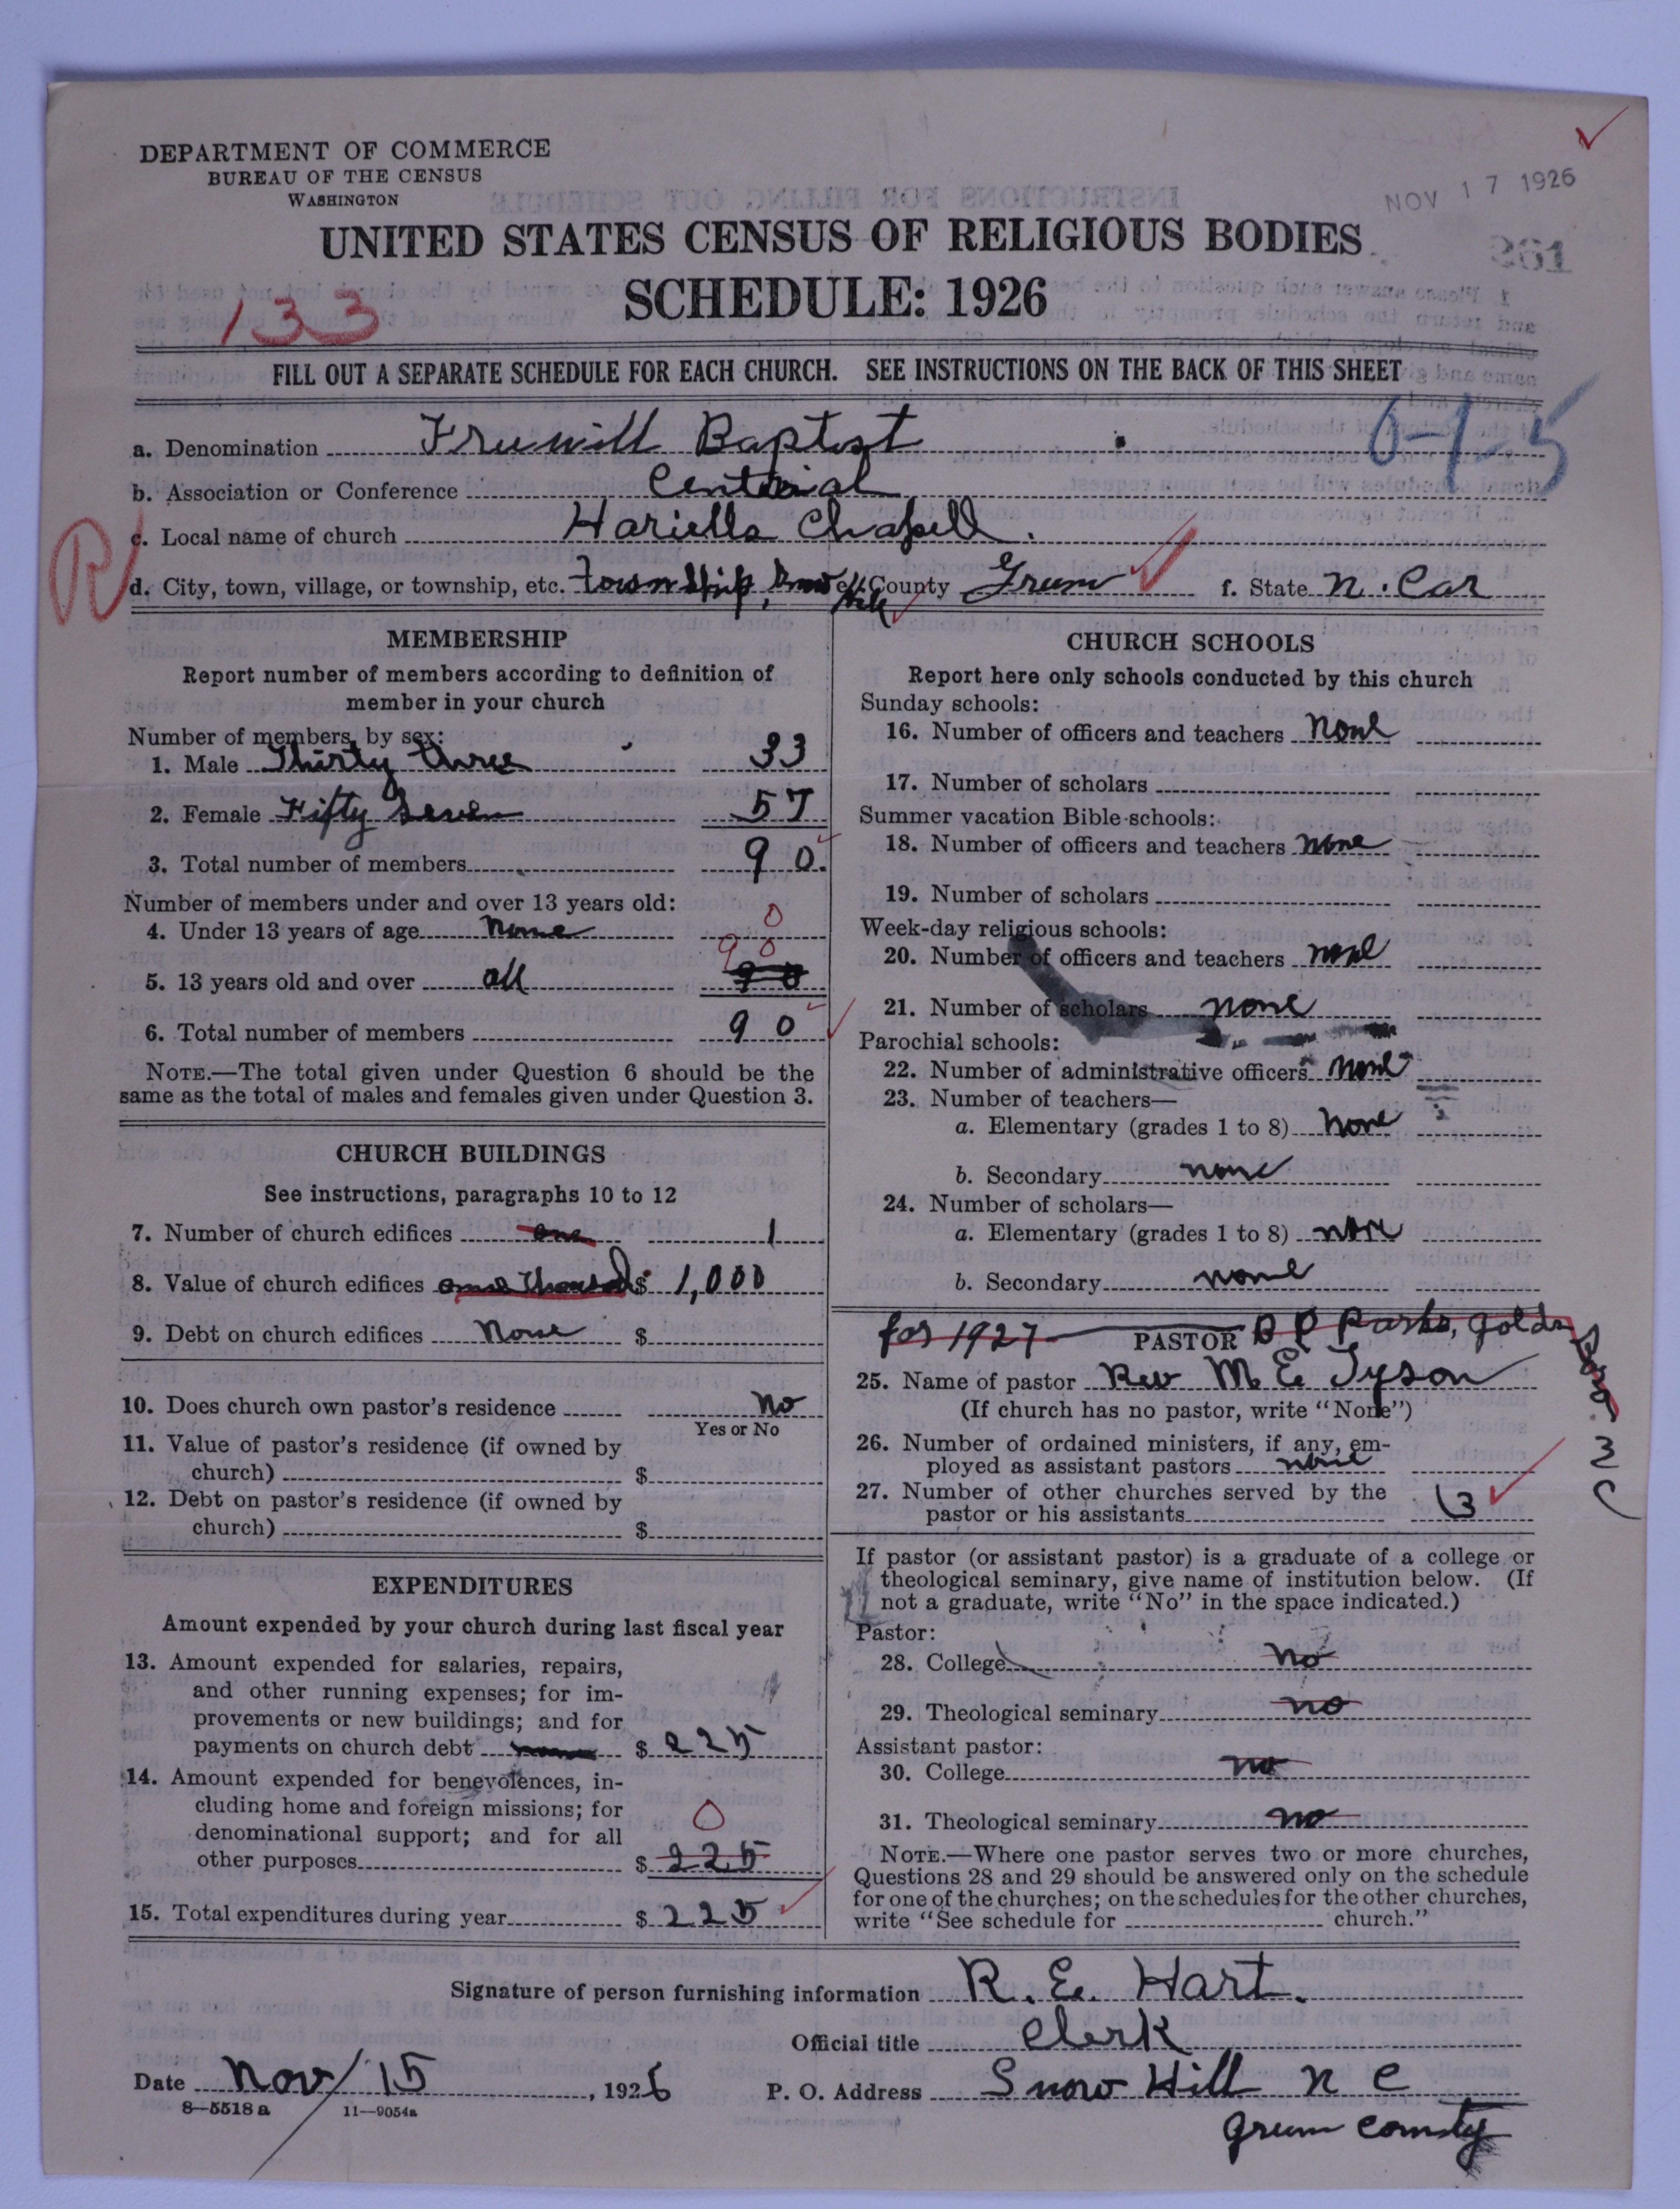 DEPARTMENT OF COMMERCE
BUREAU OF THE CENSUS
WASHINGTON
NOV 17 1926
UNITED STATES CENSUS OF RELIGIOUS BODIES
261
SCHEDULE: 1926
133
FILL OUT A SEPARATE SCHEDULE FOR EACH CHURCH. SEE INSTRUCTIONS ON THE BACK OF THIS SHEET
0-1-5
a. Denomination Freewill Baptist
b. Association or Conference Centenial
R
c. Local name of church Hariells Chapell.
d. City, town, village, or township, etc. township, Snow Hill e. County Green f. State N. Car
MEMBERSHIP
Report number of members according to definition of
member in your church
Number of members, by sex:
1. Male Thirty three 33
2. Female Fifty Seven 57
3. Total number of members 90
Number of members under and over 13 years old:
4. Under 13 years of age None 0
90
5. 13 years old and over all 90
6. Total number of members 90
NOTE.—The total given under Question 6 should be the
same as the total of males and females given under Question 3.
CHURCH BUILDINGS
See instructions, paragraphs 10 to 12
7. Number of church edifices one 1
8. Value of church edifices one thousand $ 1,000
9. Debt on church edifices None $
10. Does church own pastor's residence No
Yes or No
11. Value of pastor's residence (if owned by
church) $
12. Debt on pastor's residence (if owned by
church) $
EXPENDITURES
Amount expended by your church during last fiscal year
13. Amount expended for salaries, repairs,
and other running expenses; for im-
provements or new buildings; and for
payments on church debt $ 225
14. Amount expended for benevolences, in-
cluding home and foreign missions; for
denominational support; and for all 0
other purposes $ 225
15. Total expenditures during year $ 225
CHURCH SCHOOLS
Report here only schools conducted by this church
Sunday schools:
16. Number of officers and teachers None
17. Number of scholars
Summer vacation Bible schools:
18. Number of officers and teachers None
19. Number of scholars
Week-day religious schools:
20. Number of officers and teachers None
21. Number of scholars none
Parochial schools:
22. Number of administrative officers None
23. Number of teachers—
a. Elementary (grades 1 to 8) None
b. Secondary none
24. Number of scholars—
a. Elementary (grades 1 to 8) none
b. Secondary none
for 1927 PASTOR B P Parks, Golds
boro N C
25. Name of pastor Rev M E Tyson
(If church has no pastor, write "None")
26. Number of ordained ministers, if any, em-
ployed as assistant pastors none
27. Number of other churches served by the
pastor or his assistants 3
If pastor (or assistant pastor) is a graduate of a college or
theological seminary, give name of institution below. (If
not a graduate, write "No" in the space indicated.)
Pastor:
28. College No
29. Theological seminary no
Assistant pastor:
30. College no
31. Theological seminary no
NOTE.—Where one pastor serves two or more churches,
Questions 28 and 29 should be answered only on the schedule
for one of the churches; on the schedules for the other churches,
write "See schedule for church."
Signature of person furnishing information R. E. Hart.
Official title Clerk
Date Nov/15, 1926 P. O. Address Snow Hill N C
8-5518a 11-9054a
Green County